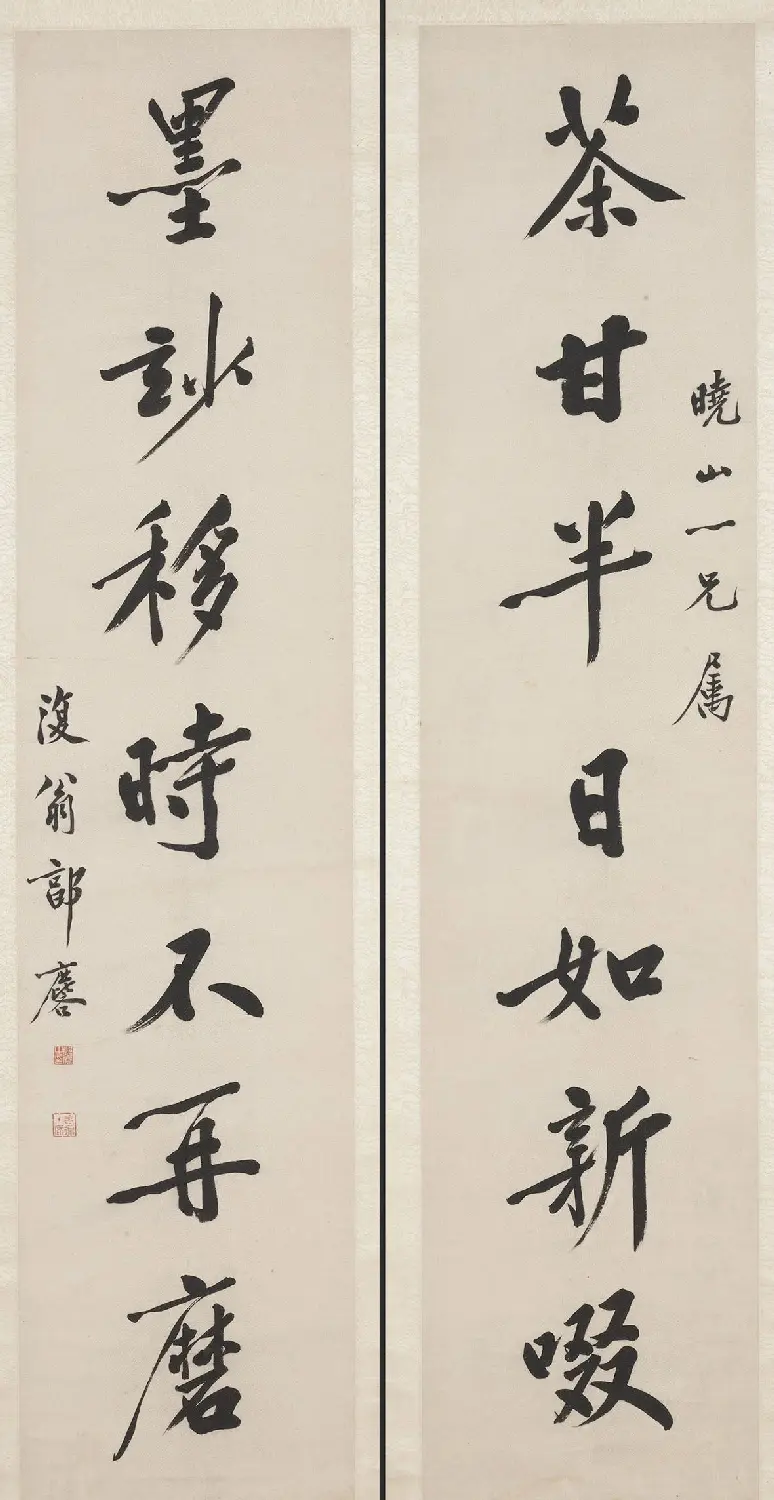 曉山一兄属
茶甘半日如新啜
墨訬移時不再磨
復翁郭麐